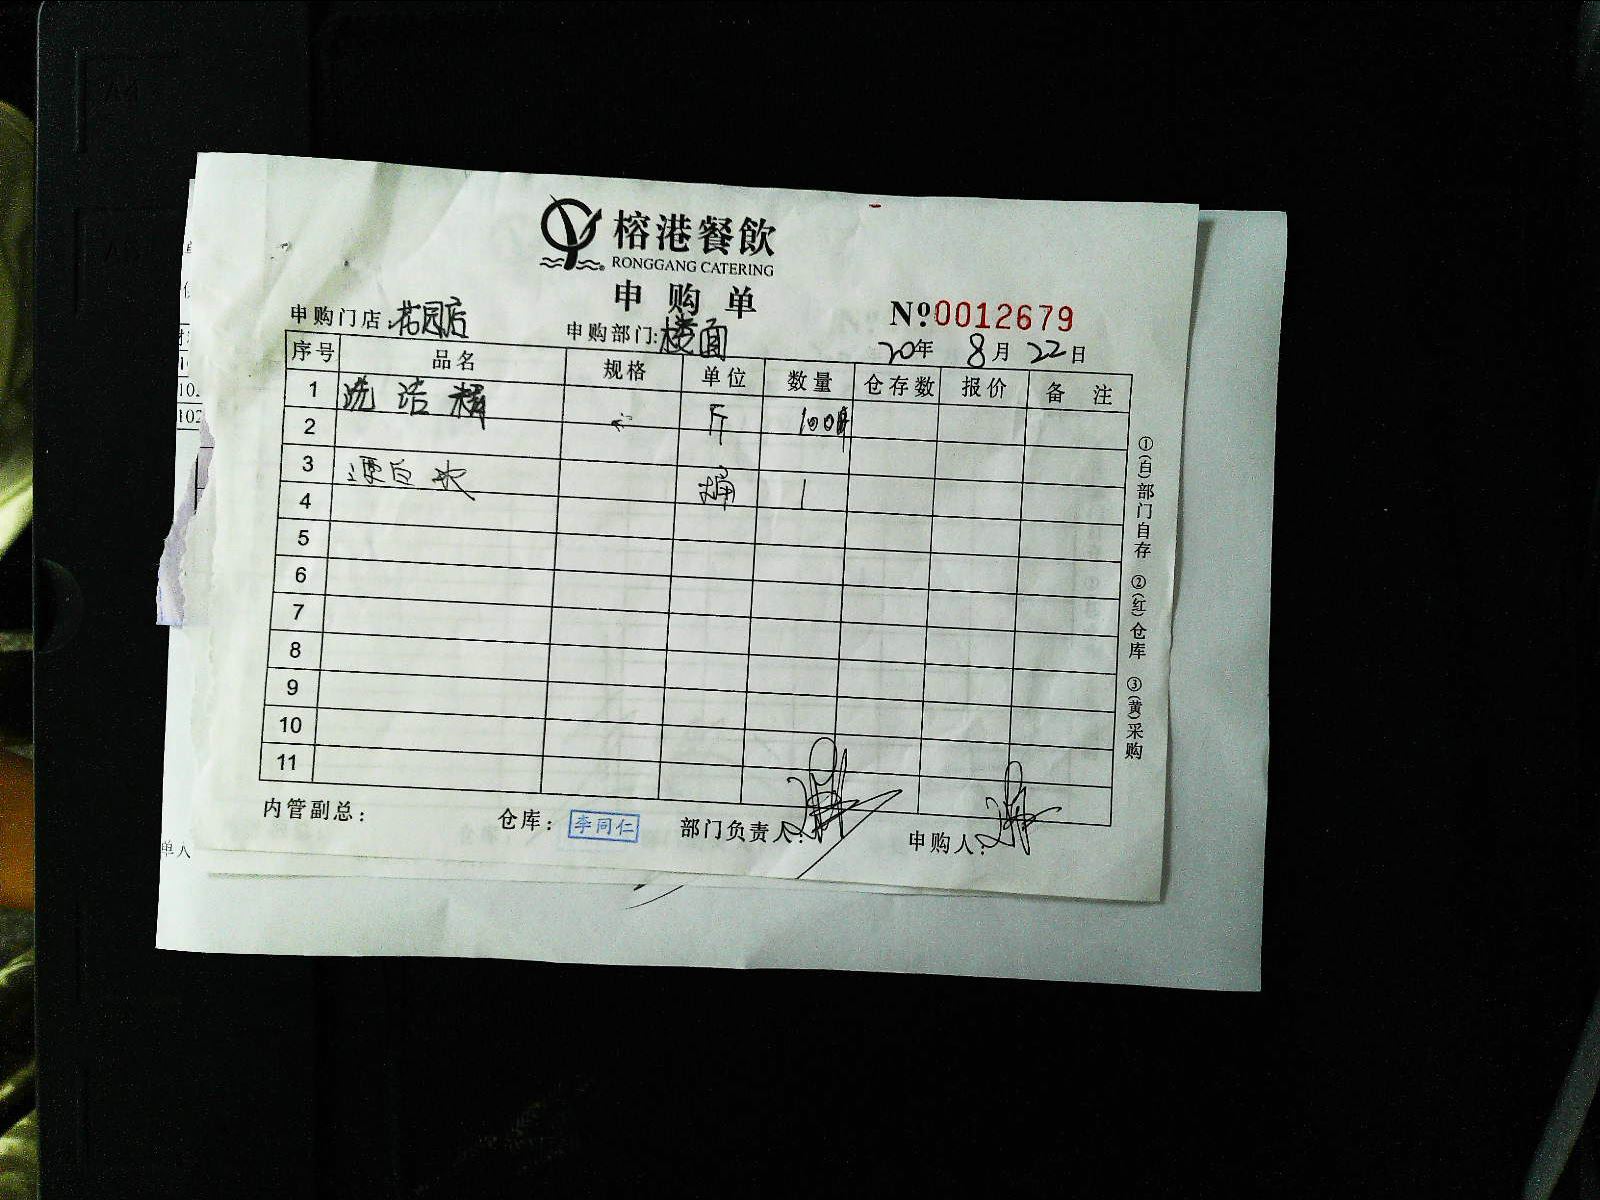 榕港餐飲
RONGGANG CATERING
申购单
申购门店:花园店 申购部门:楼面 №0012679
20年 8月 22日
序号 品名 规格 单位 数量 仓存数 报价 备注
1 洗洁精 斤 100斤
2
3 漂白水 桶 1
4
5
6
7
8
9
10
11
内管副总: 仓库: 李同仁 部门负责人: 申购人:
①(白)部门自存 ②(红)仓库 ③(黄)采购
10
102
单人